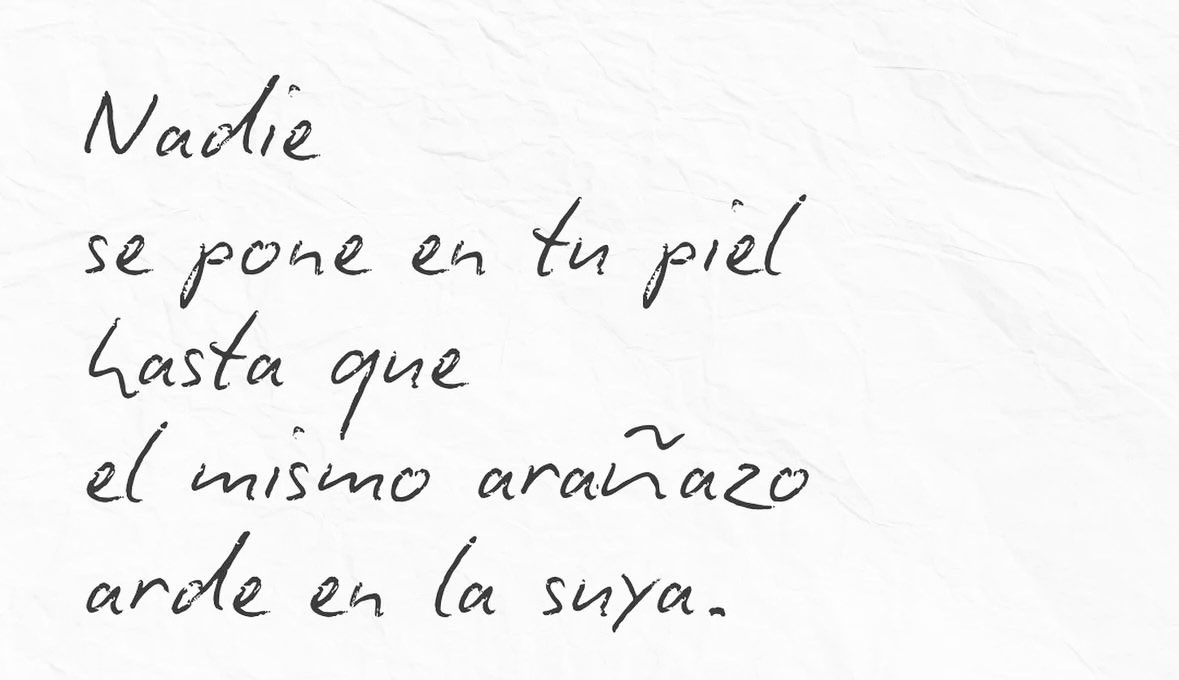 Nadie
se pone en tu piel
hasta que
el mismo arañazo
arde en la suya.